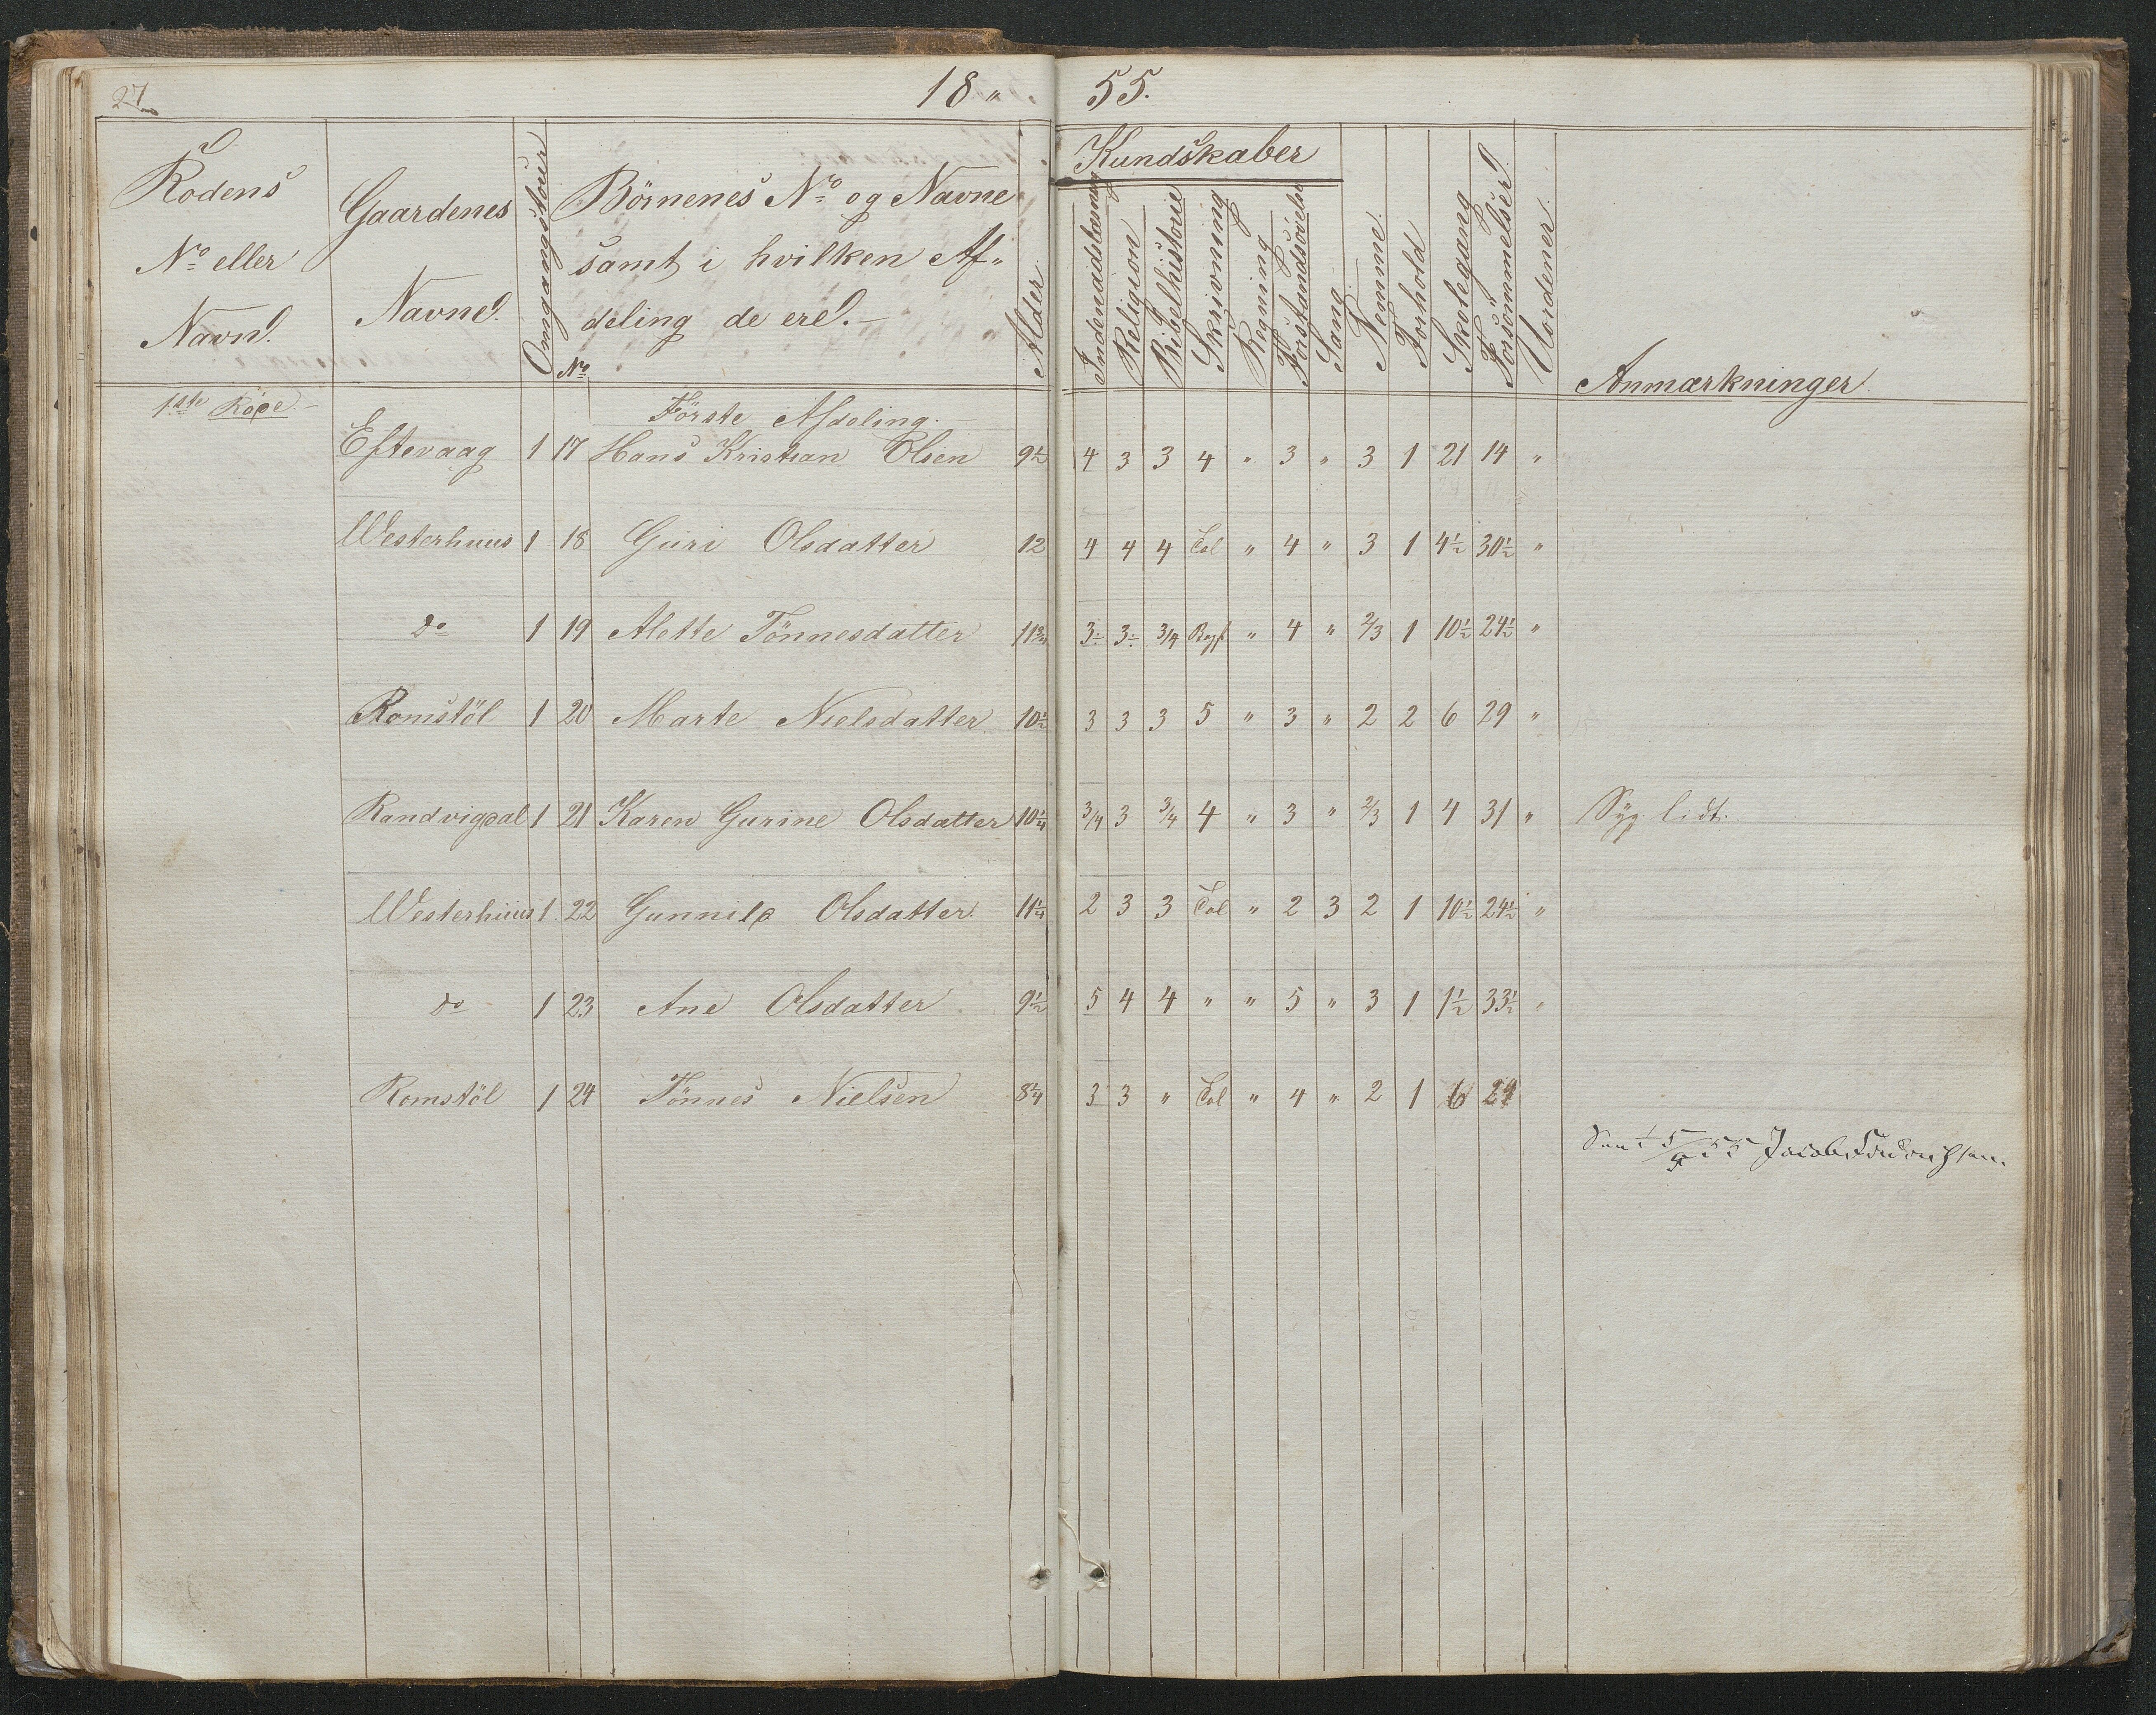 27
18 " 55.
Rodens No eller Navn.
Gaardenes Navne.
Omgangstour
No
Börnenes No og Navne samt i hvilken Af- deling de ere.
Alder
Kundskaber
Indenadslæsning
Religion
Bibelhistorie
Skrivning
Regning
Forstandsövelse
Sang
Nemme.
Forhold
Skolegang
Forsömmelser
Uordener.
Anmærkninger
1ste Rode.
Förste Afdeling.
Eftevaag 1 17 Hans Kristian Olsen 9½ 4 3 3 4 " 3 " 3 1 21 14 "
Westerhuus 1 18 Guri Olsdatter 12 4 4 4 Col " 4 " 3 1 4½ 30½ "
do 1 19 Alette Tönnesdatter 11¾ 3÷ 3÷ 3/4 " 4 " 2/3 1 10½ 24½ "
Romstöl 1 20 Marte Nielsdatter 10½ 3 3 3 5 " 3 " 2 2 6 29 "
Randvigdal 1 21 Karen Gurine Olsdatter 10¼ 3/4 3 3/4 4 " 3 " 2/3 1 4 31 " Syg lidt.
Westerhuus 1 22 Gunnild Olsdatter 11¼ 2 3 3 Col " 2 3 2 1 10½ 24½ "
do 1 23 Ane Olsdatter 9½ 5 4 4 " " 5 " 3 1 1½ 33½ "
Romstöl 1 24 Tönnes Nielsen 8¼ 3 3 " Col " 4 " 2 1 6 29